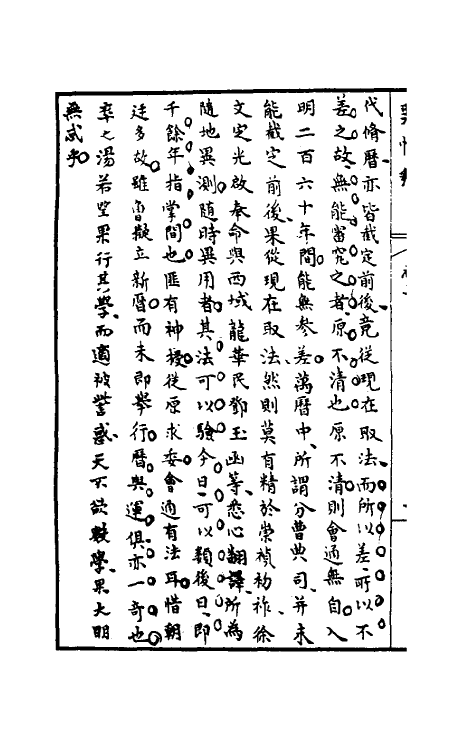 代脩曆亦皆截定前後竟從現在取法而所以差所以不
差之故無能審究之者原不清也原不清則會通無自入
明二百六十年間能無參差萬曆中所謂分曹典司并未
能截定前後果從現在取法然則莫有精於崇禎初祚徐
文定光啟奉命與西域龍華民鄧玉函等悉心翻譯所為
隨地異測隨時異用者其法可以驗今日可以類後日即
千餘年指掌間也匪有神授從原求委會通有法耳惜朝
廷多故雖曾擬立新曆而未即舉行曆與運俱亦一奇也
卒之湯若望果行其學而適被讒惑天不欲數學果大明
無惑乎